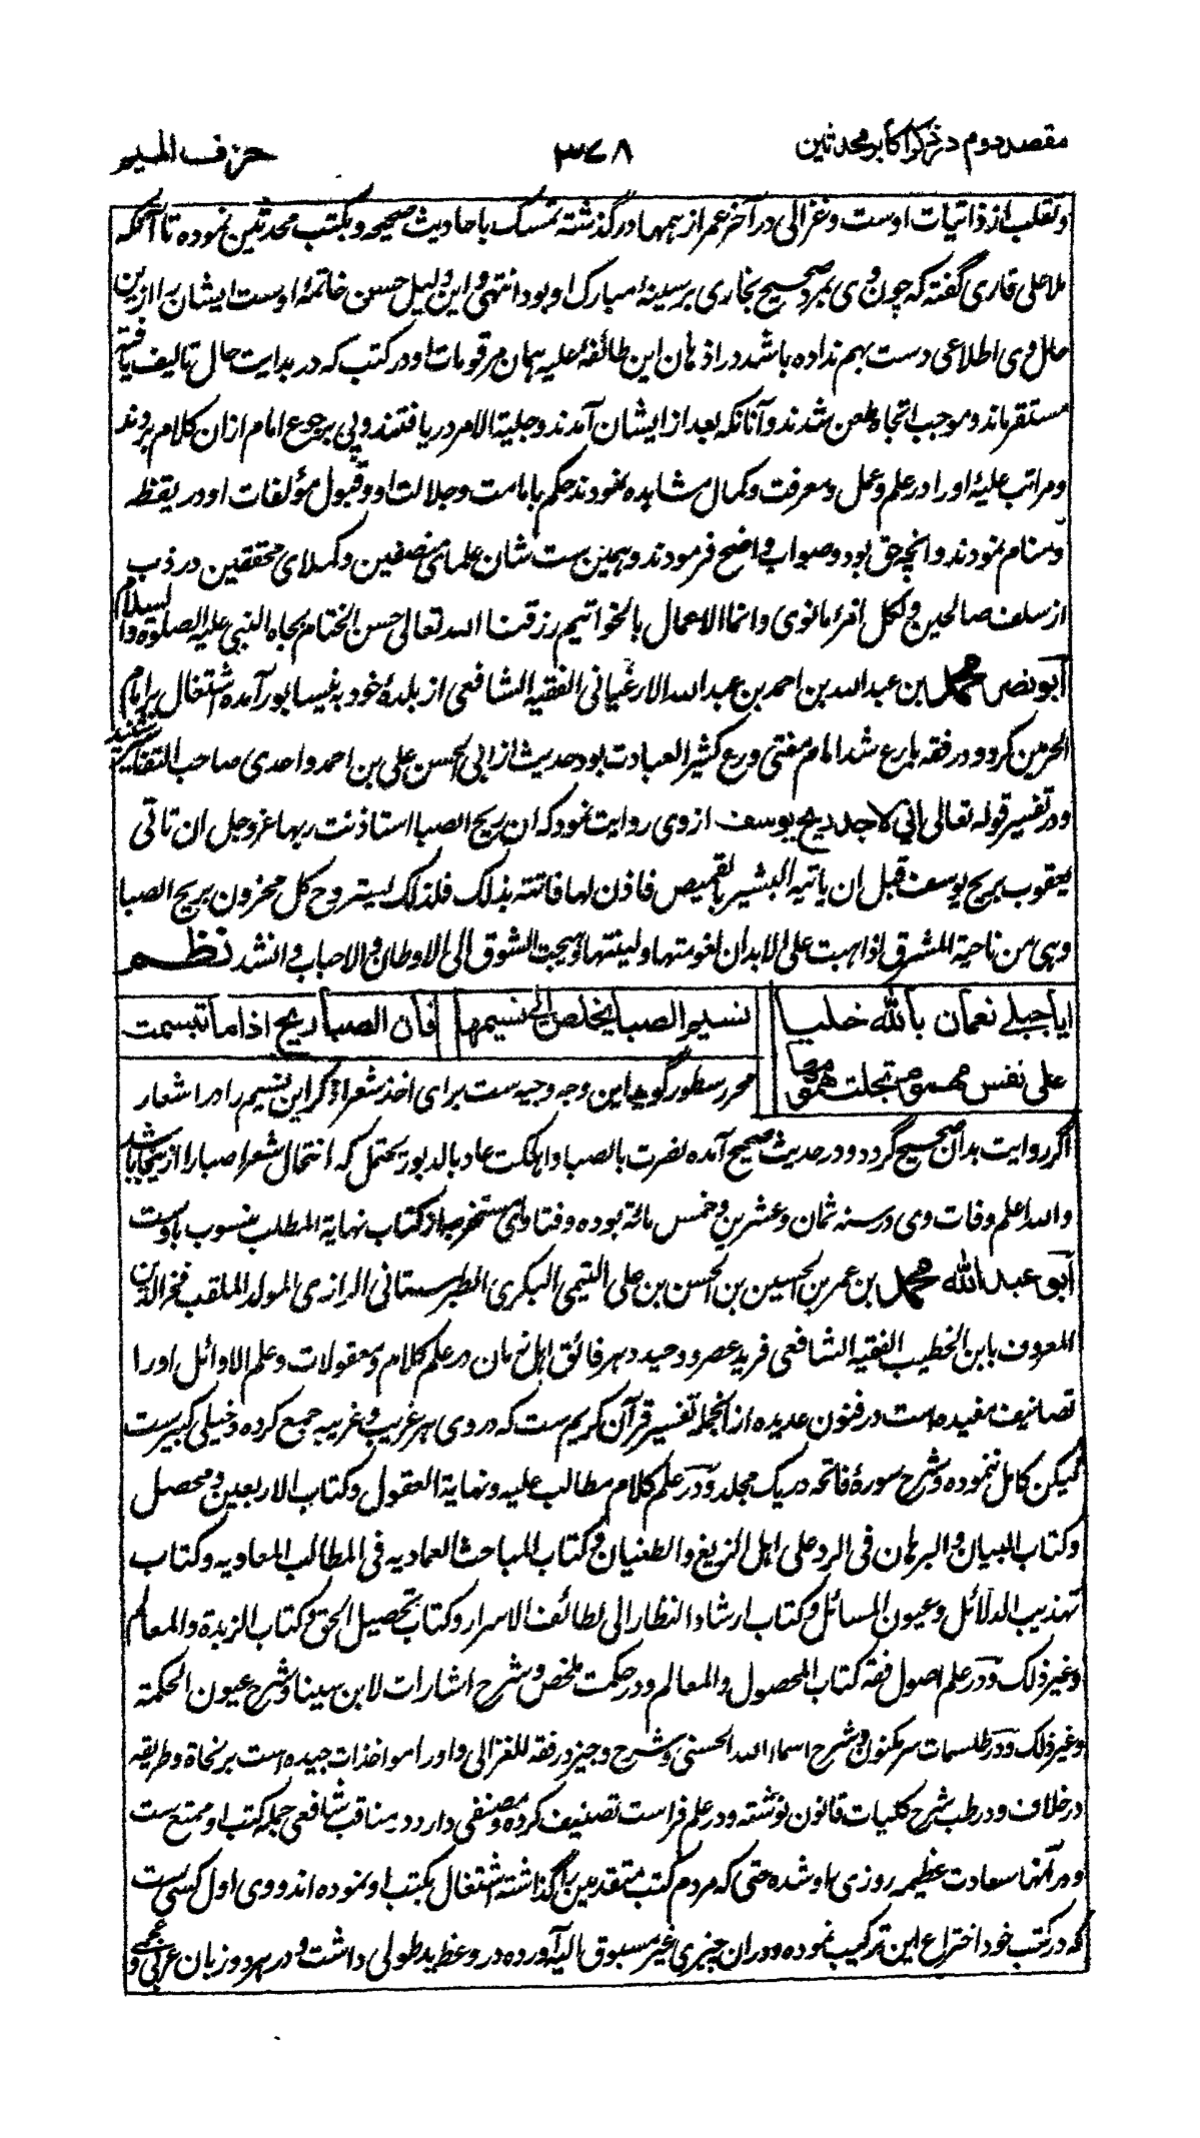 مقصد دوم در ذکر اکابر محدثین ۳۷۸ حرف المیم
وتقلب از ذاتیات اوست وغزالی در آخر عمر از همها درگذشته تمسک باحادیث صحیحه وبکتب محدثین نموده تا آنکه
ملا علی قاری گفته که چون وی بمرد صحیح بخاری بر سینهٔ مبارک او بود انتهی واین دلیل حسن خاتمهٔ اوست ایشان را ازین
حال وی اطلاعی دست بهم نداده باشد در اذهان این طائفهٔ علیه همان مرقومات او در کتب که در بدایت حال تالیف یافته
مستقر ماند وموجب اتجاه طعن شدند وآنانکه بعد از ایشان آمدند وجلیة الامر دریافتند وپی برجوع امام ازان کلام بردند
ومراتب علیهٔ او را در علم وعمل ومعرفت وکمال مشاهده نمودند حکم بامامت وجلالت او وقبول مؤلفات او در یقظه
ومنام نمودند وانچه حق بود وصواب واضح فرمودند وهمین ست شان علمای منصفین وکملای محققین در ذب
از سلف صالحین ولکل امرء ما نوی وانما الاعمال بالخواتیم رزقنا الله تعالی حسن الختام بجاه النبی علیه الصلوة والسلام
ابو نصر محمد بن عبد الله بن احمد بن عبد الله الارغیانی الفقیه الشافعی از بلدهٔ خود به نیسابور آمده اشتغال بر امام
الحرمین کرد ودر فقه بارع شد امام مفتی ورع کثیر العبادت بود حدیث از ابی الحسن علی بن احمد واحدی صاحب التفاسیر شنید
ودر تفسیر قوله تعالی انی لاجد ریح یوسف از وی روایت نمود که ان ریح الصبا استاذنت ربها عز وجل ان تاتی
یعقوب بریح یوسف قبل ان یاتیه البشیر بالقمیص فاذن لها فاتته بذلک فلذلک یستروح کل محزون بریح الصبا
وهی من ناحیة المشرق اذا هبت علی الابدان نعمتها ولینتها وهیجت الشوق الی الاوطان والاحباب وانشد نظم
ایا جبلی نعمان بالله خلیا نسیم الصبا یخلص الی نسیمها فان الصبا ریح اذا ما تبسمت
علی نفس مهموم تجلت همومها محرر سطور گوید این وجه وجیه ست برای اخذ شعرا ذکر این نسیم را در اشعار
اگر روایت بدان صحیح گردد ودر حدیث صحیح آمده نصرت بالصبا واهلکت عاد بالدبور یحتمل که انتحال شعرا صبا را ازینجا باشد
والله اعلم وفات وی در سنه ثمان وعشرین وخمس مائة بوده وفتاوای مستخرجه از کتاب نهایة المطلب منسوب باوست
ابو عبد الله محمد بن عمر بن الحسین بن الحسن بن علی التیمی البکری الطبرستانی الرازی المولد الملقب فخر الدین
المعروف بابن الخطیب الفقیه الشافعی فرید عصر وحید دهر فائق اهل زمان در علم کلام ومعقولات وعلم الاوائل او را
تصانیف مفیده است در فنون عدیده ازانجمله تفسیر قرآن کریم ست که در وی هر غریب وغریبه جمع کرده وخیلی کبیر ست
لیکن کامل ننموده وشرح سورهٔ فاتحه در یک مجلد ودر علم کلام مطالب علیه ونهایة العقول وکتاب الاربعین ومحصل
وکتاب البیان والبرهان فی الرد علی اهل الزیغ والطغیان وکتاب المباحث العمادیه فی المطالب المعادیه وکتاب
تهذیب الدلائل وعیون المسائل وکتاب ارشاد النظار الی لطائف الاسرار وکتاب تحصیل الحق وکتاب الزبدة والمعالم
وغیر ذلک ودر علم اصول فقه کتاب المحصول والمعالم ودر حکمت ملخص وشرح اشارات لابن سینا وشرح عیون الحکمة
وغیر ذلک ودر طلسمات سر مکنون وشرح اسماء الله الحسنی وشرح وجیز در فقه للغزالی واو را مواخذات جیده است بر نحاة وطریقه
در خلاف ودر طب شرح کلیات قانون نوشته ودر علم فراست تصنیف کرده ومصنفی دارد در مناقب شافعی جمله کتب او ممتع ست
ودر آنها سعادت عظیمه روزی او شده حتی که مردم کتب متقدمین را گذاشته اشتغال بکتب او نموده اند ووی اول کسی ست
که در کتب خود اختراع این ترکیب نموده ودران چیزی غیر مسبوق الیه آورده در وعظ ید طولی داشت ودر هر دو زبان عربی وعجمی